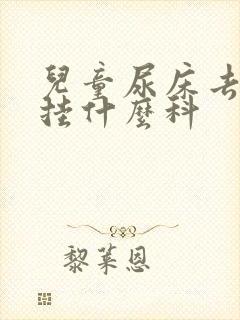 兒童尿床去
挂什麼科
黎萊恩